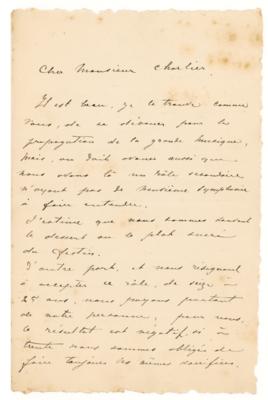 Cher Monsieur Charlier,
Il est beau, je le trouve comme
vous, de se dévouer pour la
propagation de la grande musique,
mais, on doit avouer aussi que
nous avons là un rôle secondaire
n'ayant pas de neuvième symphonie
à faire entendre.
J'estime que nous sommes
le dessert ou le plat sucré
du festin.
D'autre part, et nous résignant
à accepter ce rôle, de seize à
25 ans, nous payons partout
de notre personne; pour nous,
le résultat est négatif, si à
trente nous sommes obligés de
faire toujours les mêmes sacrifices.